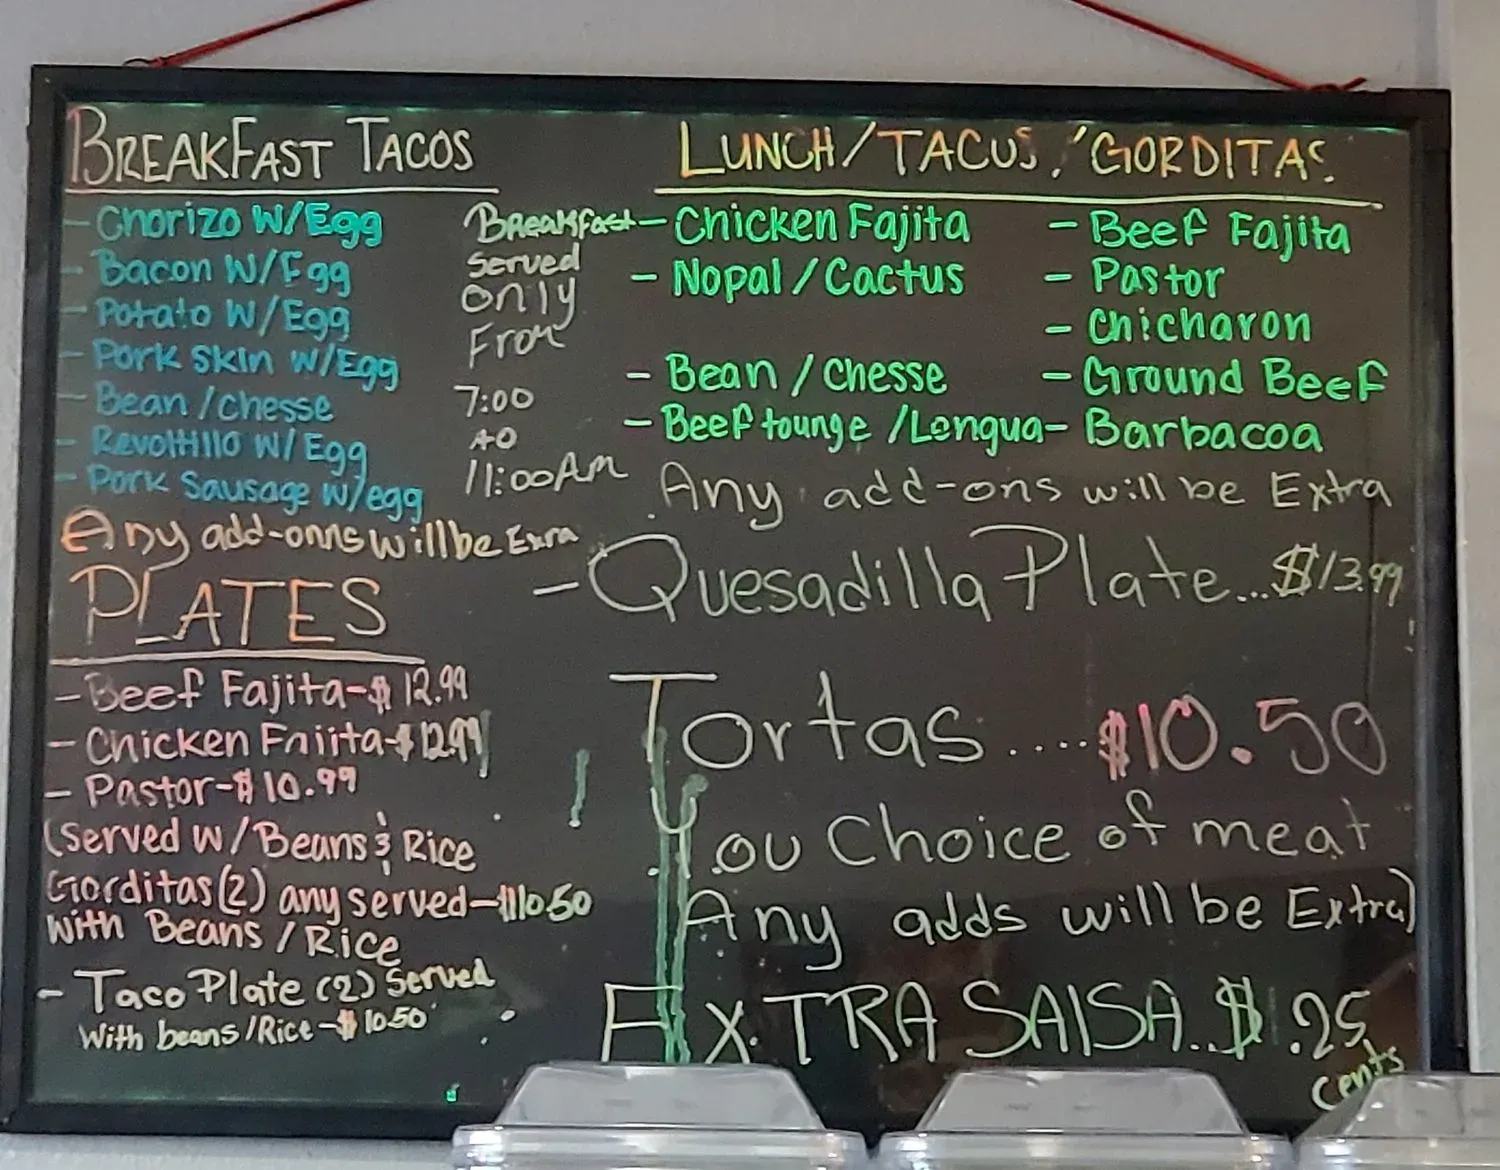 BREAKFAST TACOS
- Chorizo W/Egg
- Bacon W/Egg
- Potato W/Egg
- Pork Skin W/Egg
- Bean/chesse
- Revoltillo W/Egg
- Pork Sausage w/egg
Breakfast
Served
only
From
7:00
to
11:00 Am
Any add-onns will be Extra
PLATES
- Beef Fajita-$ 12.99
- Chicken Fajita-$12.99
- Pastor-$10.99
(Served w/Beans & Rice
Gorditas(2) any served-$10.50
with Beans/Rice
- Taco Plate (2) Served
With beans/Rice-$10.50
LUNCH/TACOS/GORDITAS
- Chicken Fajita
- Nopal/Cactus
- Bean/Chesse
- Beef tounge/Lengua
- Beef Fajita
- Pastor
- Chicharon
- Ground Beef
- Barbacoa
Any add-ons will be Extra
- Quesadilla Plate...$13.99
Tortas.....$10.50
You Choice of meat
Any adds will be Extra)
EXTRA SALSA..$.25
cents